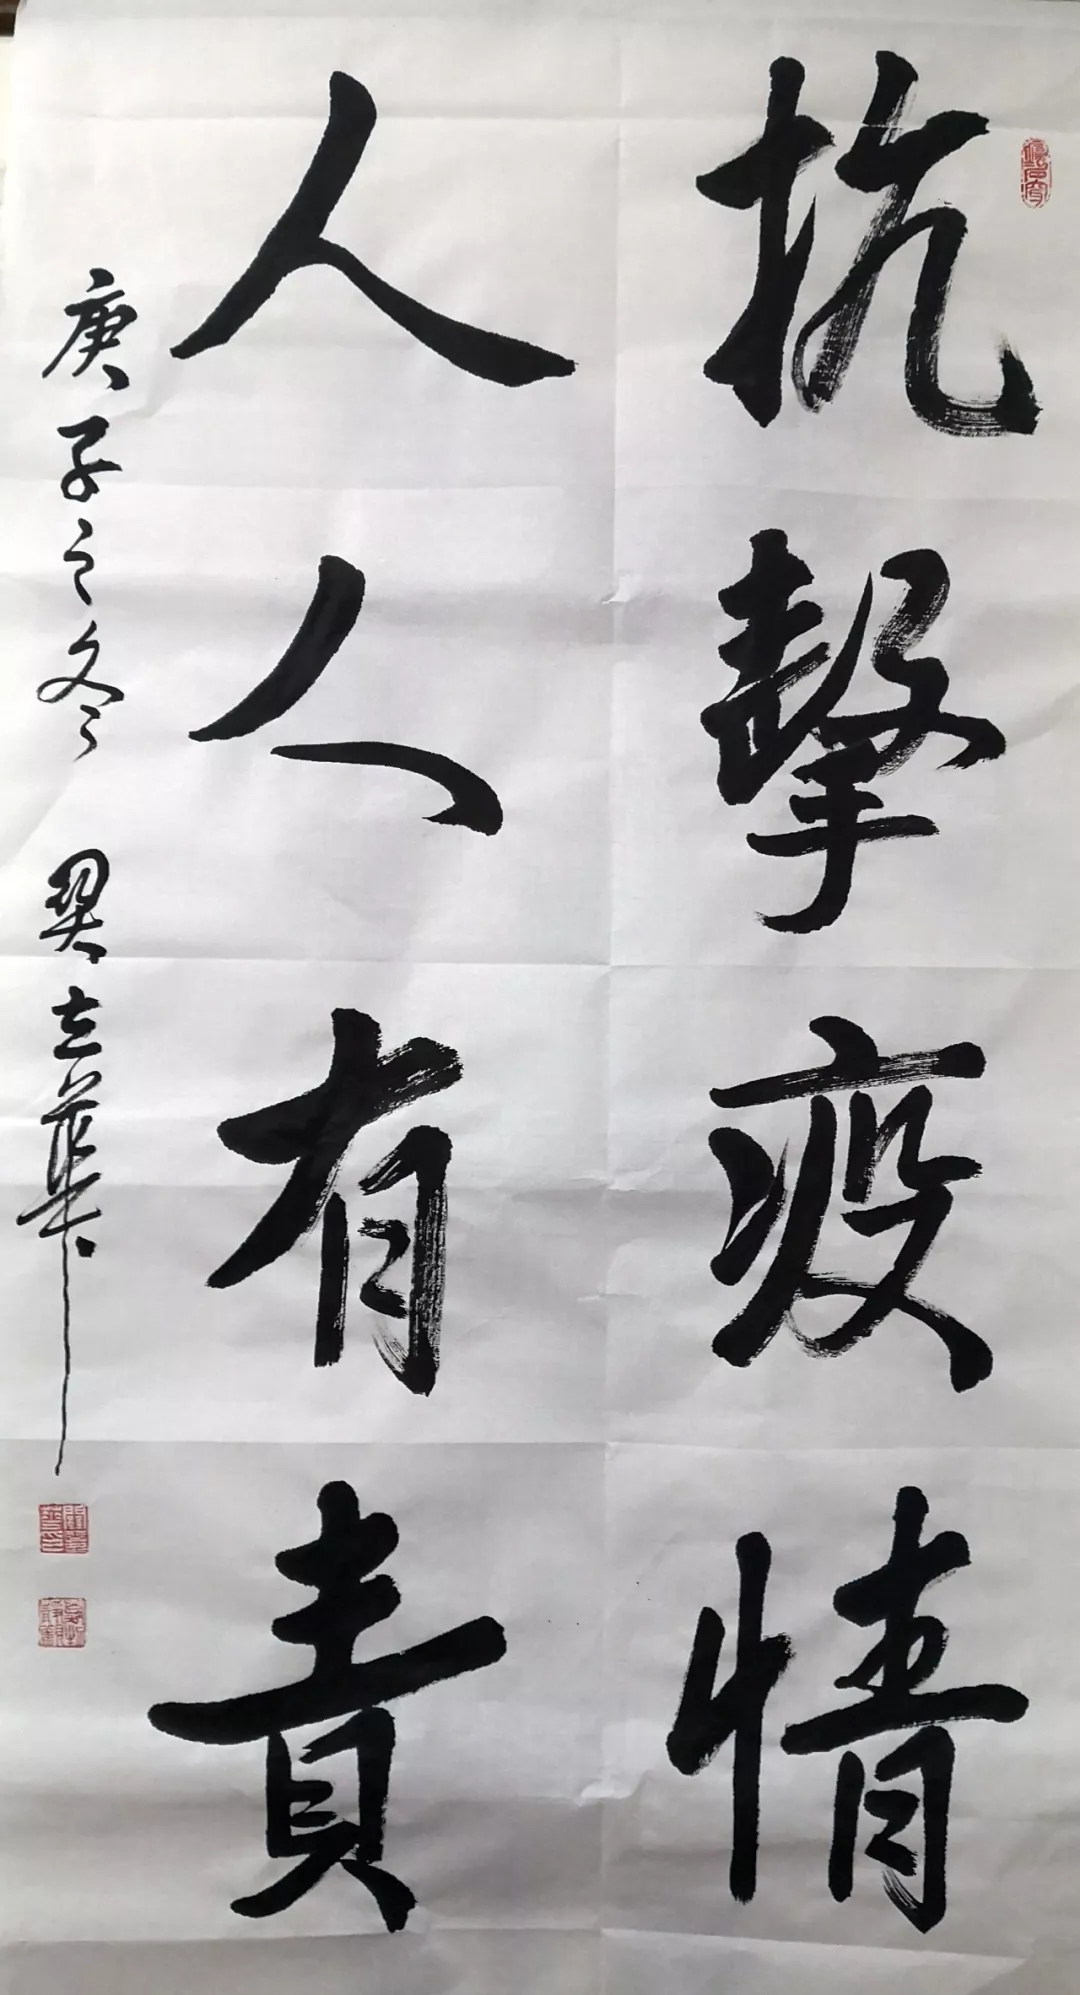 抗擊疫情
人人有責
庚子之冬